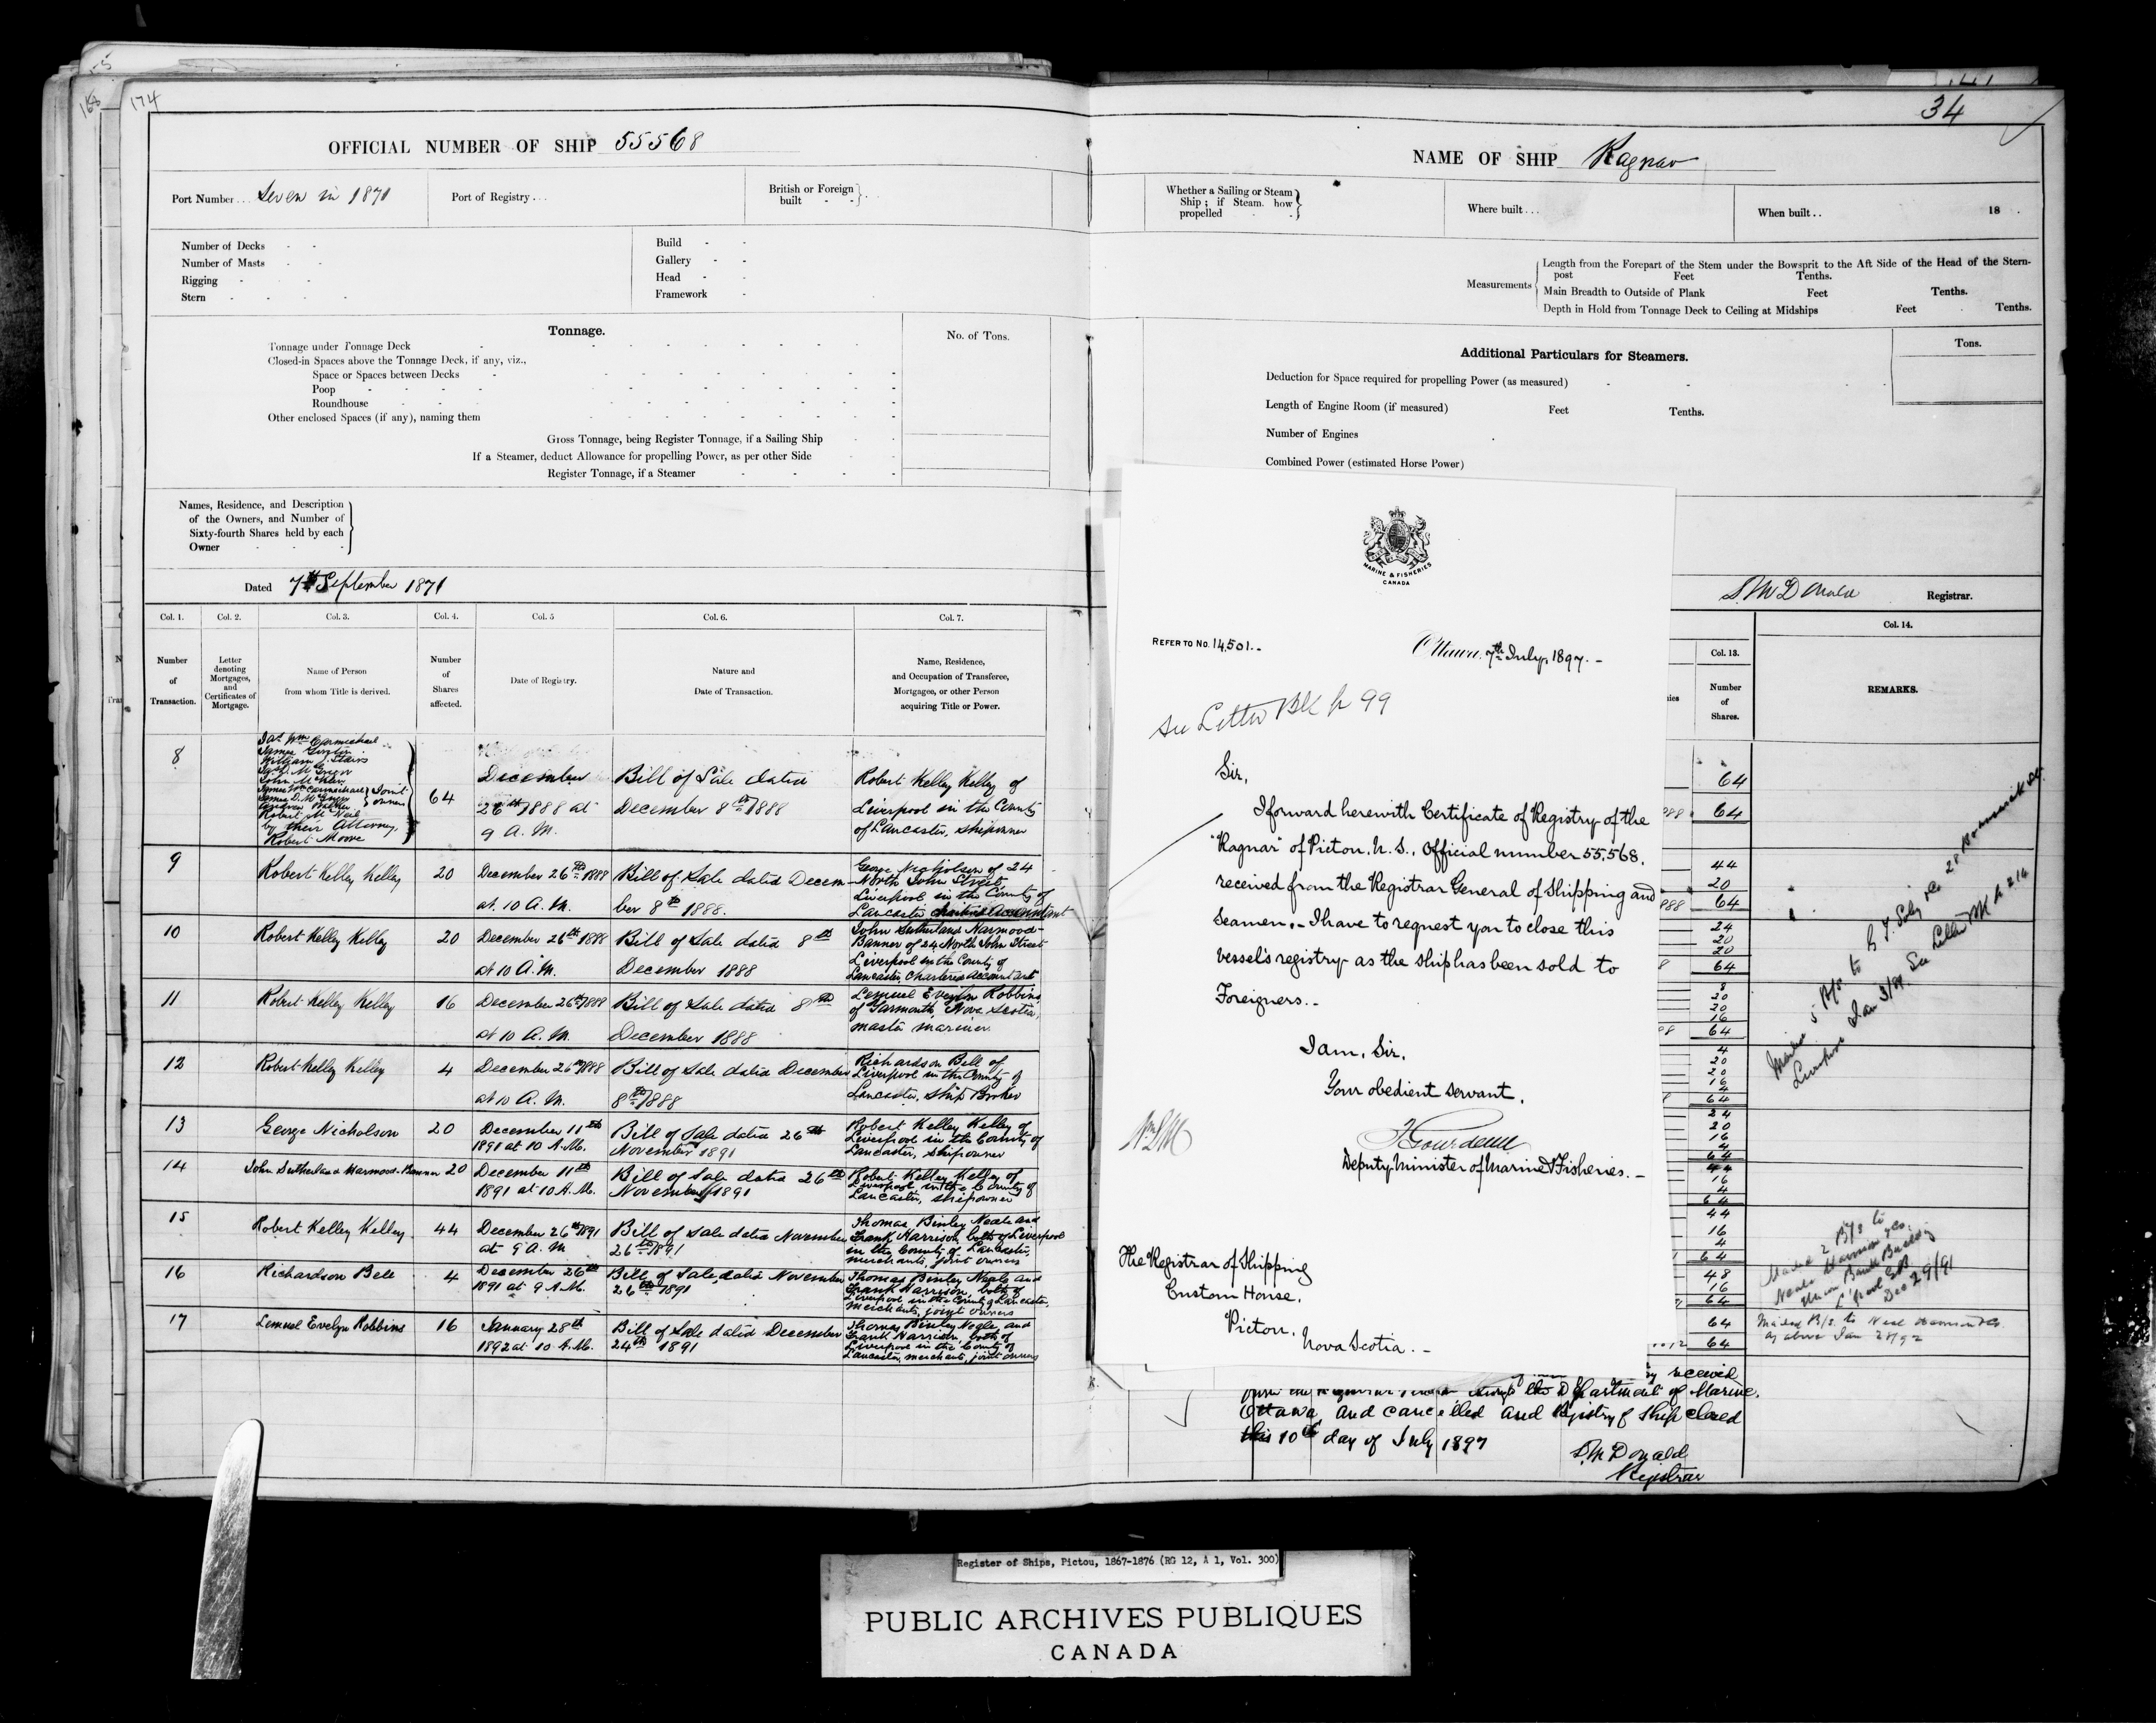 168
174
OFFICIAL NUMBER OF SHIP 55568
Port Number... Seven in 1871
Port of Registry...
British or Foreign built - -
Number of Decks - -
Number of Masts - -
Rigging - -
Stern - - - -
Build - -
Gallery - -
Head - -
Framework -
Tonnage.
No. of Tons.
Tonnage under Tonnage Deck
Closed-in Spaces above the Tonnage Deck, if any, viz.,
Space or Spaces between Decks
Poop
Roundhouse
Other enclosed Spaces (if any), naming them
Gross Tonnage, being Register Tonnage, if a Sailing Ship
If a Steamer, deduct Allowance for propelling Power, as per other Side
Register Tonnage, if a Steamer
Names, Residence, and Description
of the Owners, and Number of
Sixty-fourth Shares held by each
Owner
Dated 7th September 1871
Col. 1. Col. 2. Col. 3. Col. 4. Col. 5 Col. 6. Col. 7.
Number of Transaction.
Letter denoting Mortgages, and Certificates of Mortgage.
Name of Person from whom Title is derived.
Number of Shares affected.
Date of Registry.
Nature and Date of Transaction.
Name, Residence, and Occupation of Transferee, Mortgagee, or other Person acquiring Title or Power.
8
Jas Wm Carmichael
William J. Stairs
James Wm Carmichael
Joint owners
by their Attorney,
Robert Moore
64
December
26th 1888 at
9 A.M.
Bill of Sale dated
December 8th 1888
Robert Kelley Kelley of
Liverpool in the County
of Lancaster, shipowner
9 Robert Kelley Kelley 20
December 26th 1888
at 10 A.M.
Bill of Sale dated Decem
ber 8th 1888.
George Nicholson of 24
North John Street
Liverpool in the County of
Lancaster Chartered Accountant
10 Robert Kelley Kelley 20
December 26th 1888
at 10 A.M.
Bill of Sale dated 8th
December 1888
John Sutherland Harmood-
Banner of 24 North John Street
Liverpool in the County of
Lancaster, Chartered Accountant
11 Robert Kelley Kelley 16
December 26th 1888
at 10 A.M.
Bill of Sale dated 8th
December 1888
Lemuel Evelyn Robbins
of Yarmouth, Nova Scotia,
master mariner
12 Robert Kelley Kelley 4
December 26th 1888
at 10 A.M.
Bill of Sale dated December
8th 1888
Richardson Bell of
Liverpool in the County of
Lancaster, Ship Broker
13 George Nicholson 20
December 11th
1891 at 10 A.M.
Bill of Sale dated 26th
November 1891
Robert Kelley Kelley of
Liverpool in the County of
Lancaster, shipowner
14 John Sutherland Harmood-Banner 20
December 11th
1891 at 10 A.M.
Bill of Sale dated 26th
November 1891
Robert Kelley Kelley of
Liverpool in the County of
Lancaster, shipowner
15 Robert Kelley Kelley 44
December 26th 1891
at 9 A.M
Bill of Sale dated November
26th 1891
Thomas Binley Neale and
Frank Harrison, both of Liverpool
in the County of Lancaster,
merchants, joint owners
16 Richardson Bell 4
December 26th
1891 at 9 A.M.
Bill of Sale dated November
26th 1891
Thomas Binley Neale and
Frank Harrison, both of
Liverpool in the County of Lancaster,
merchants, joint owners
17 Lemuel Evelyn Robbins 16
January 28th
1892 at 10 A.M.
Bill of Sale dated December
24th 1891
Thomas Binley Neale and
Frank Harrison, both of
Liverpool in the County of
Lancaster, merchants, joint owners
34
NAME OF SHIP Ragnar
Whether a Sailing or Steam
Ship; if Steam. how
propelled
Where built...
When built.. 18
Measurements
Length from the Forepart of the Stem under the Bowsprit to the Aft Side of the Head of the Stern-
post Feet Tenths.
Main Breadth to Outside of Plank Feet Tenths.
Depth in Hold from Tonnage Deck to Ceiling at Midships Feet Tenths.
Additional Particulars for Steamers.
Tons.
Deduction for Space required for propelling Power (as measured)
Length of Engine Room (if measured) Feet Tenths.
Number of Engines
Combined Power (estimated Horse Power)
D. McDonald Registrar.
Col. 13. Col. 14.
Number of Shares.
REMARKS.
MARINE & FISHERIES
CANADA
REFER TO No. 14,501.-
Ottawa, 7th July, 1897.-
See Letter Bk p 99
Sir,
I forward herewith Certificate of Registry of the
"Ragnar" of Pictou, N.S., Official number 55,568,
received from the Registrar General of Shipping and
Seamen.- I have to request you to close this
vessel's registry as the ship has been sold to
Foreigners.-
I am, Sir,
Your obedient servant,
F Gourdeau
Deputy Minister of Marine & Fisheries.-
The Registrar of Shipping
Custom House,
Pictou,
Nova Scotia.-
64
64
44
20
64
24
20
20
64
8
20
20
16
64
4
20
20
16
4
64
24
20
16
4
64
44
16
4
64
44
16
4
64
48
16
64
64
64
Liverpool Jan 3/89. See Letter Bk p 214
Mailed 2 B/S to
Neale Harrison & Co.
Union Bank Building
L'pool GB
Dec 29/91
Mailed B/S to Neale Harrison & Co.
as above Jan 28/92
received
through the Department of Marine,
Ottawa, and cancelled and Registry of Ship closed
this 10th day of July 1897
D. McDonald
Registrar
Register of Ships, Pictou, 1867-1876 (RG 12, A 1, Vol. 300)
PUBLIC ARCHIVES PUBLIQUES
CANADA